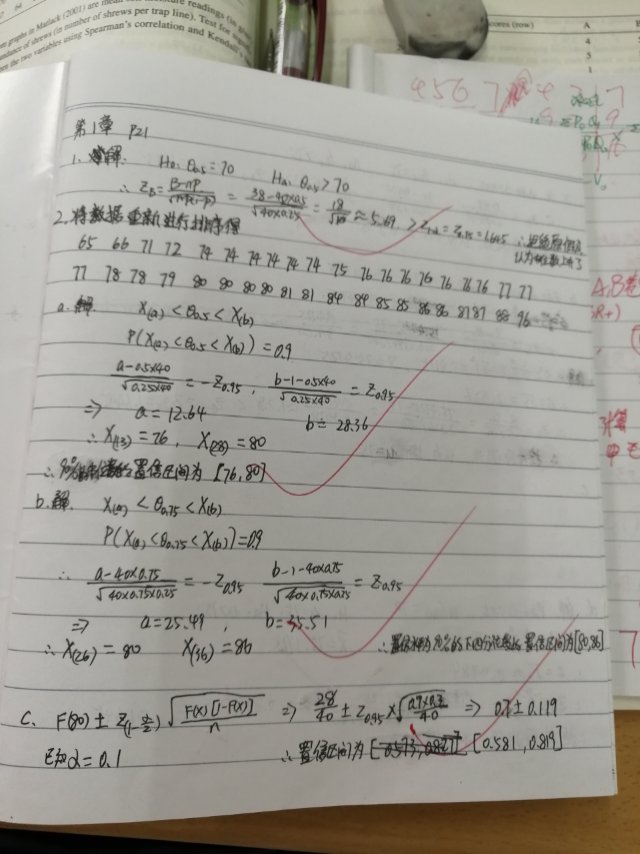 om graphs in Matlack (2001) are mean soil moisture readings (in
ndance of shrews (in number of shrews per trap line). Test for
n the two variables using Spearman's correlation and Kendall's
cores (row)
A
4
5
4 5 6 7
第1章 P21
1. 解: H₀: θ₀.₅=70 Hₐ: θ₀.₅>70
∴ Z_B = (B-np)/√(np(1-p)) = (38-40×0.5)/√(40×0.25) = 18/√10 ≈ 5.69 > Z₁₋α = Z₀.₉₅ = 1.645 ∴拒绝原假设
2. 将数据重新进行排序得
65 66 71 72 74 74 74 74 74 74 75 76 76 76 76 76 76 76 77 77
77 78 78 79 80 80 80 80 81 81 84 84 85 85 86 86 87 87 88 96
a. 解 X(a) < θ₀.₅ < X(b)
P(X(a) < θ₀.₅ < X(b)) = 0.9
(a-0.5×40)/√(0.25×40) = -Z₀.₉₅ , (b-1-0.5×40)/√(0.25×40) = Z₀.₉₅
⇒ a=12.64 b=28.36
∴ X(13) = 76 , X(28) = 80
∴ 90% 置信区间为 [76, 80]
b. 解 X(a) < θ₀.₇₅ < X(b)
P(X(a) < θ₀.₇₅ < X(b)) = 0.9
∴ (a-40×0.75)/√(40×0.75×0.25) = -Z₀.₉₅ (b-1-40×0.75)/√(40×0.75×0.25) = Z₀.₉₅
⇒ a=25.49 , b=35.51
∴ X(26) = 80 X(36) = 86 ∴ 90%的下四分位数的置信区间为[80,86]
C. F(80) ± Z(1-α/2) √(F(x)[1-F(x)]/n) ⇒ 28/40 ± Z₀.₉₅ × √(0.7×0.3/40) ⇒ 0.7±0.119
已知α=0.1 ∴ 置信区间为 [0.573, 0.827] [0.581, 0.819]